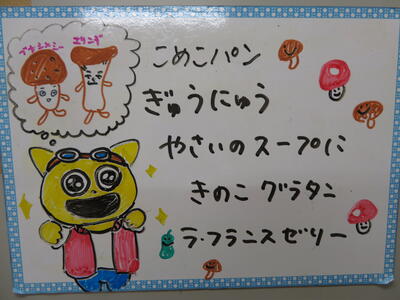 ブナシメジ
エリンギ
こめこパン
ぎゅうにゅう
やさいのスープに
きのこ グラタン
ラ・フランスゼリー